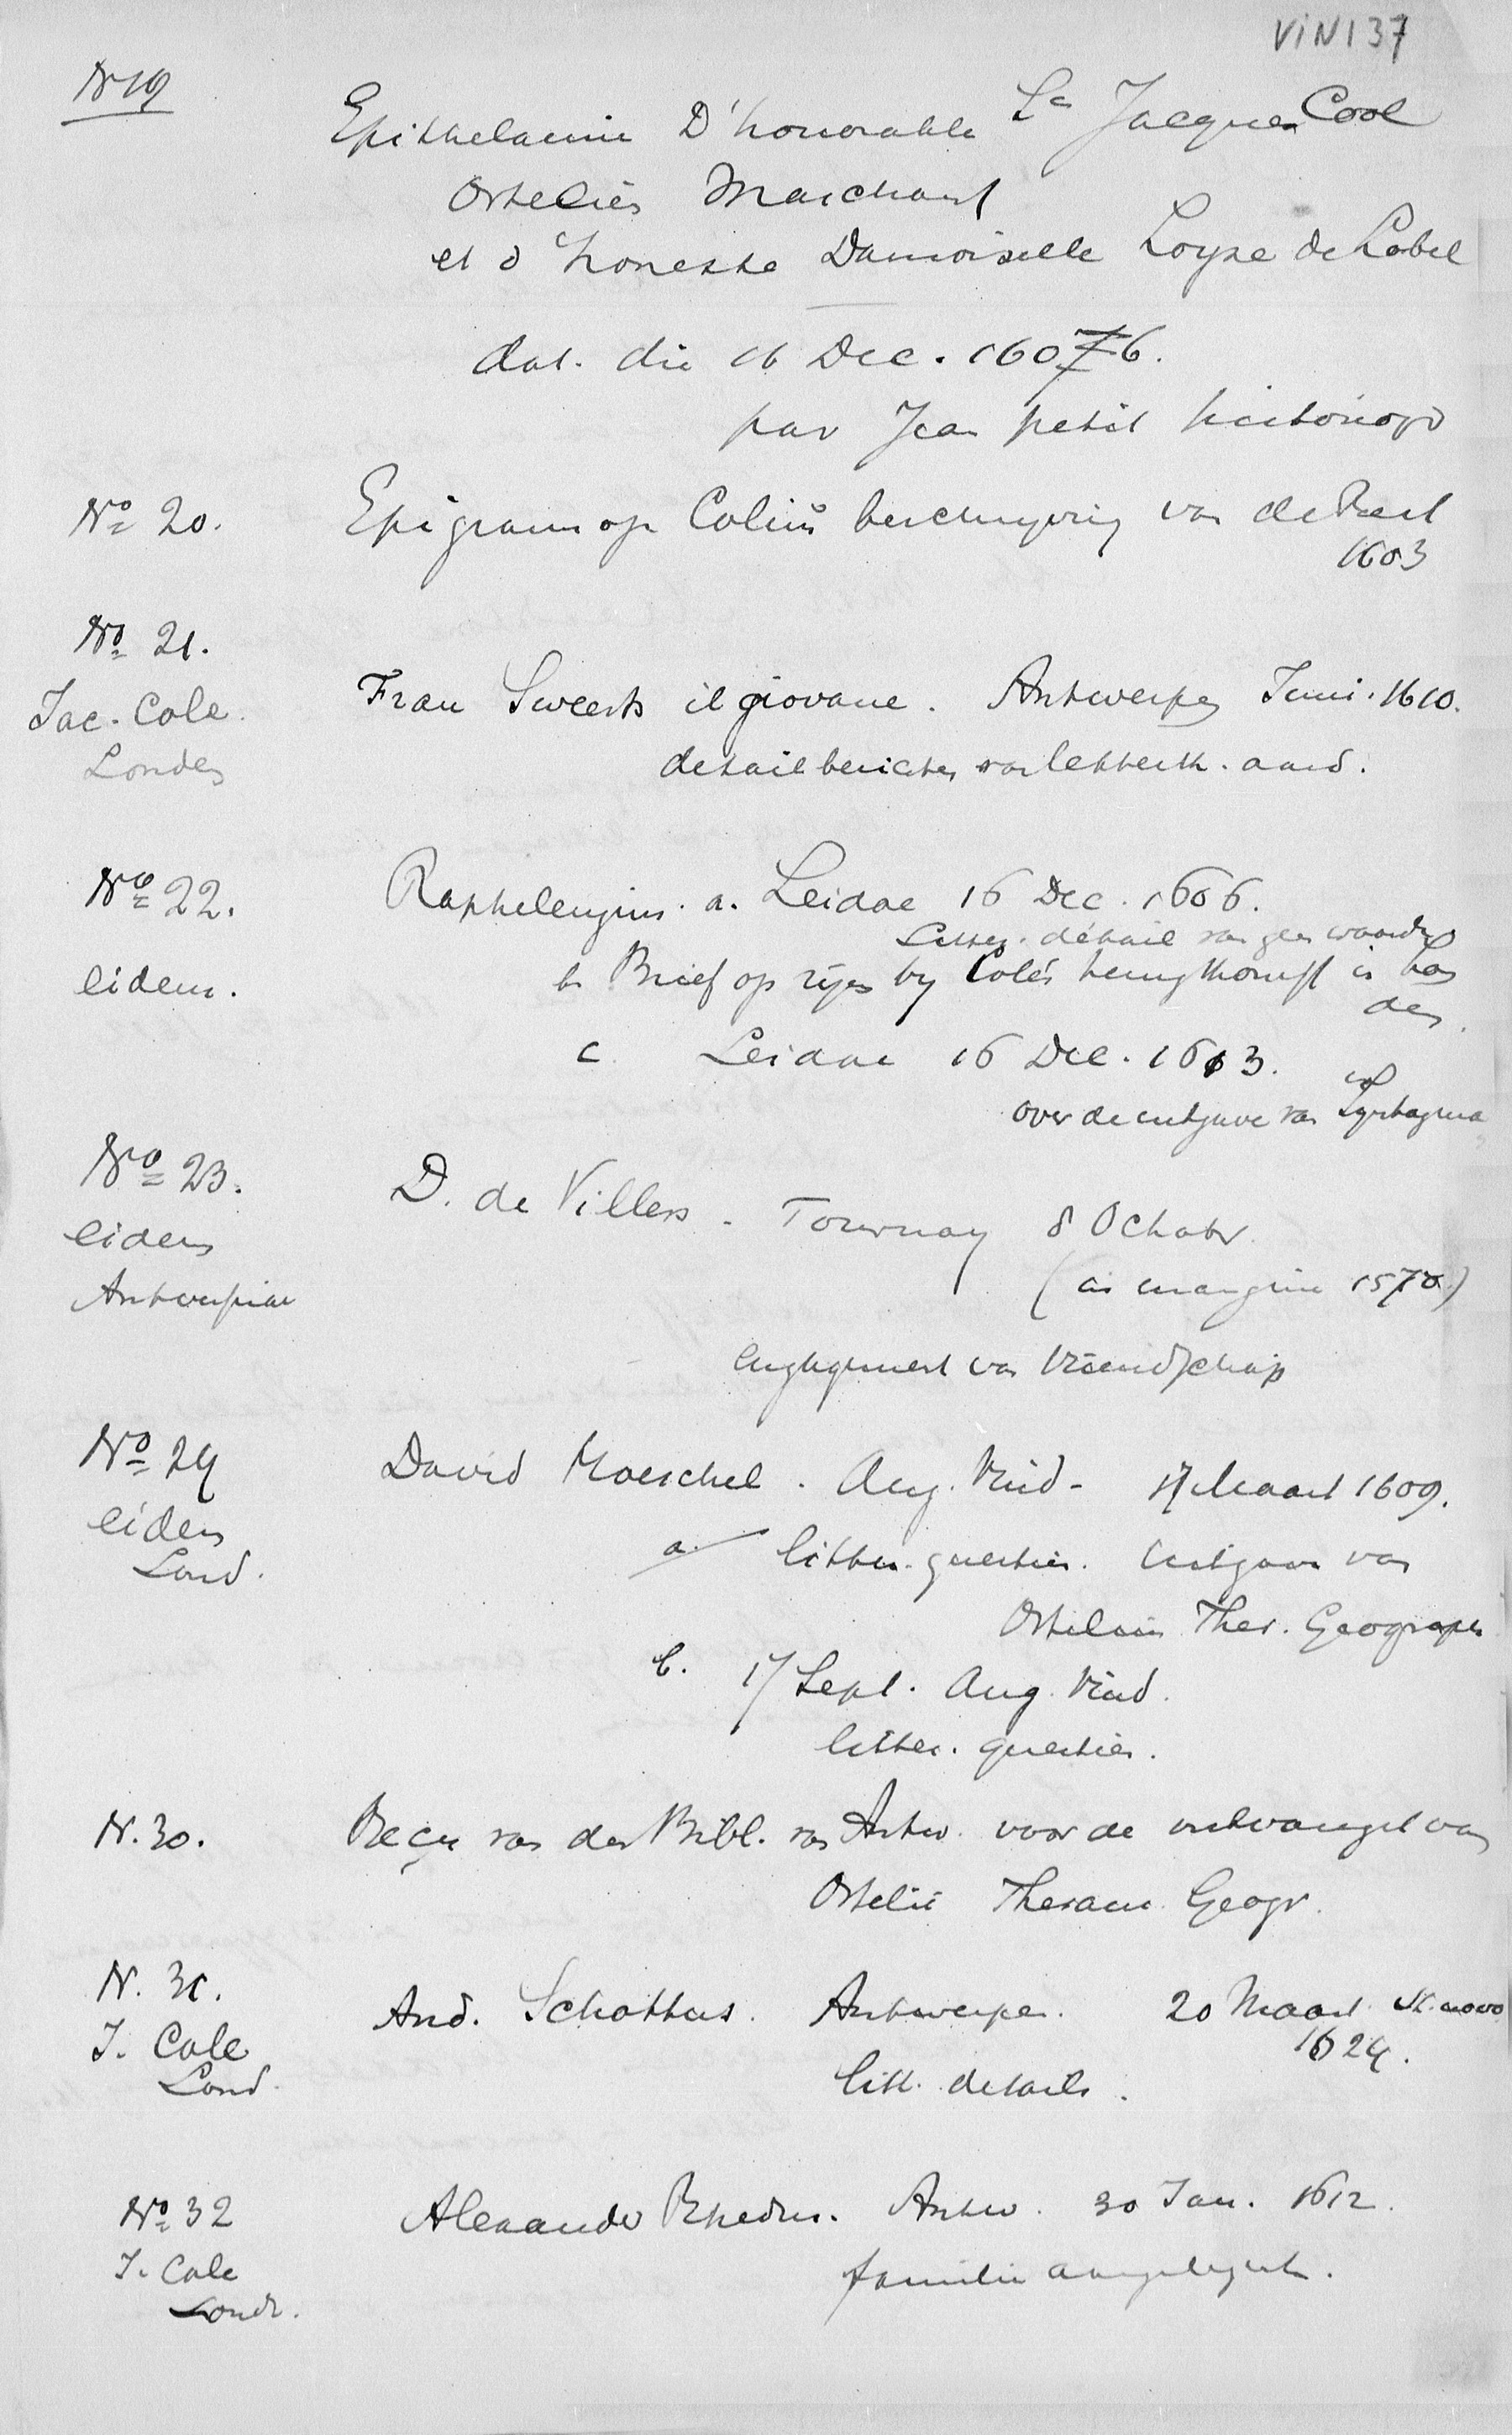 VIN137
No 19
Epithelamie D'honorable Sr Jacques Cool
Ortelien Marchant
et d'honeste Damoiselle Loyse de Lobel
dat. die 16 Dec. 16076.
par Jean petit
No 20.
Epigram op Colius beschryving van de Pest
1603
No 21.
Jac. Cole.
Londen
Fran Sweerts il giovane. Antwerpen Juni. 1610.
detailberichten van letterk. aard.
No 22.
eidem.
Raphelengius. a. Leidae 16 Dec. 1606.
Litter. détail van geen waarde
b. Brief op rijm by Cole's terugkomst in Lon
den.
c. Leidae 16 Dec. 1613.
over de uitgave van Syntagma
No 23.
eidem
Antwerpiae
D. de Villers - Tournay 8 Octobr.
(in margine 1570)
van vriendschap
No 24
eidem
Lond.
David Hoeschel. Aug. Vind. 17 Maart 1609.
a. litter. questies. Uitgave van
Ortelius Thes. Geograph
b. 17 Sept. Aug. Vind.
litter. questies.
N. 30.
Reçu van der Bibl. van Antw. voor de ontvangst van
Ortelii Thesaur. Geogr.
N. 31.
J. Cole
Lond.
And. Schottus. Antwerpen. 20 Maart st. novo
1624.
litt. details.
No 32
J. Cole
Londr.
Alexander Antw. 30 Jan. 1612.
familie aangelegenh.